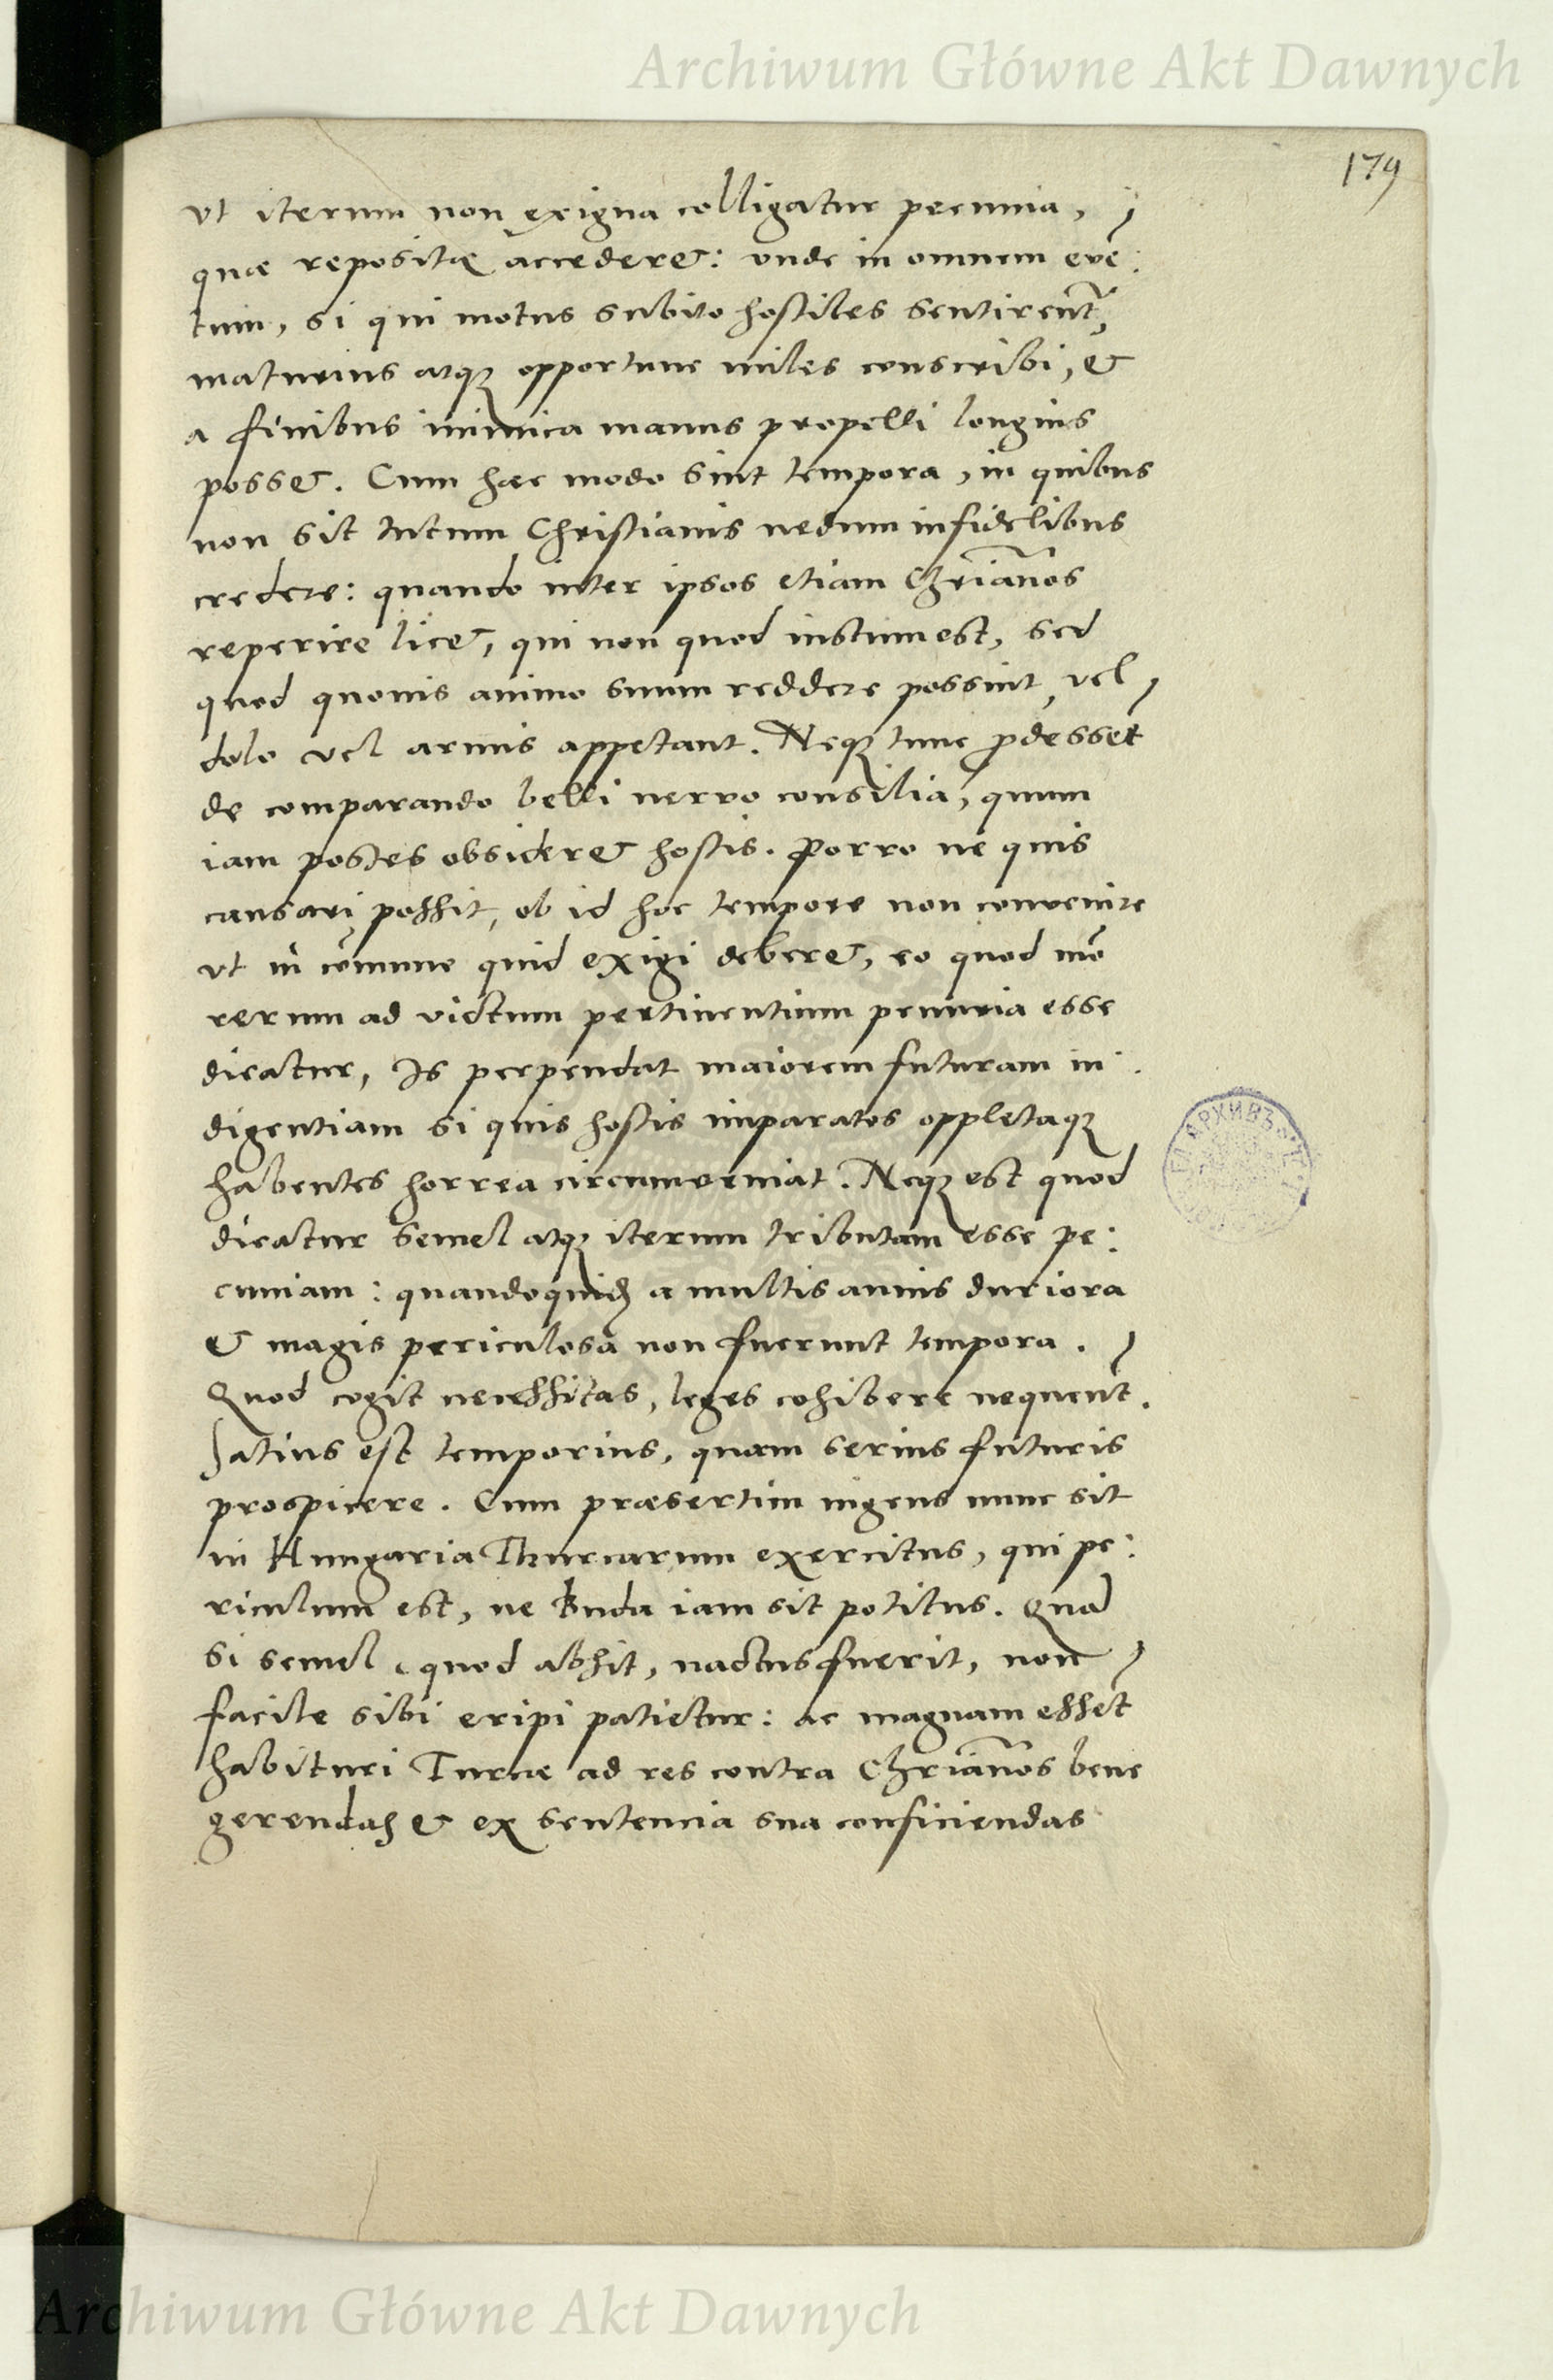 Archiwum Główne Akt Dawnych
179
vt iterum non exigua colligatur pecunia,
quæ repositæ accederet: vnde in omnem evē:
tum, si qui motus subito hostiles sentirent,
maturius atq₃ opportune miles conscribi, &
a finibus inimica manus propelli longius
posset. Cum hæc modo sint tempora, in quibus
non sit tutum Christianis nedum infidelibus
credere: quando inter ipsos etiam Chrianos
reperire licet, qui non quod iustum est, sed
quod quouis animo suum reddere possint, vel
dolo vel armis appetant. Neq₃ tunc ꝓdessent
de comparando belli nervo consilia, quum
iam postes obsideret hostis. Porro ne quis
causari possit, ob id hoc tempore non convenire
vt in cōmune quid exigi deberet, eo quod mō
rerum ad victum pertinentium penuria esse
dicatur, Is perpendat maiorem futuram in:
digentiam si quis hostis imparatos oppletaq₃
habentes horrea circumveniat. Neq₃ est quod
dicatur semel atq₃ iterum tributam esse pe:
cuniam: quandoquidē a multis annis duriora
& magis periculosa non fuerunt tempora.
Quod cogit necessitas, leges cohibere nequeunt.
Satius est temporius, quam serius futuris
prospicere. Cum præsertim ingens nunc sit
in Hungaria Thurcarum exercitus, qui pe:
riculum est, ne Buda iam sit potitus. Qua
si semel, quod absit, nactus fuerit, non
facile sibi eripi patietur: ac magnam essent
habituri Turcæ ad res contra Chrianos bene
gerendas & ex sententia sua conficiendas
АРХИВЪ
Archiwum Główne Akt Dawnych